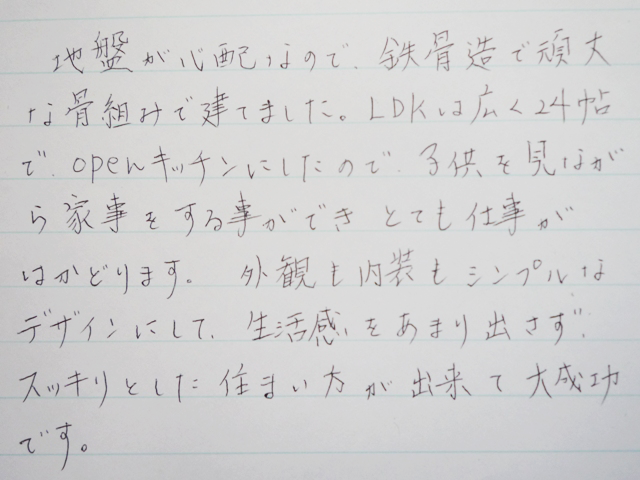 地盤が心配なので、鉄骨造で頑丈
な骨組みで建てました。LDKは広く24帖
で、openキッチンにしたので、子供を見なが
ら家事をする事ができとても仕事が
はかどります。 外観も内装もシンプルな
デザインにして、生活感をあまり出さず、
スッキリとした住まい方が出来て大成功
です。